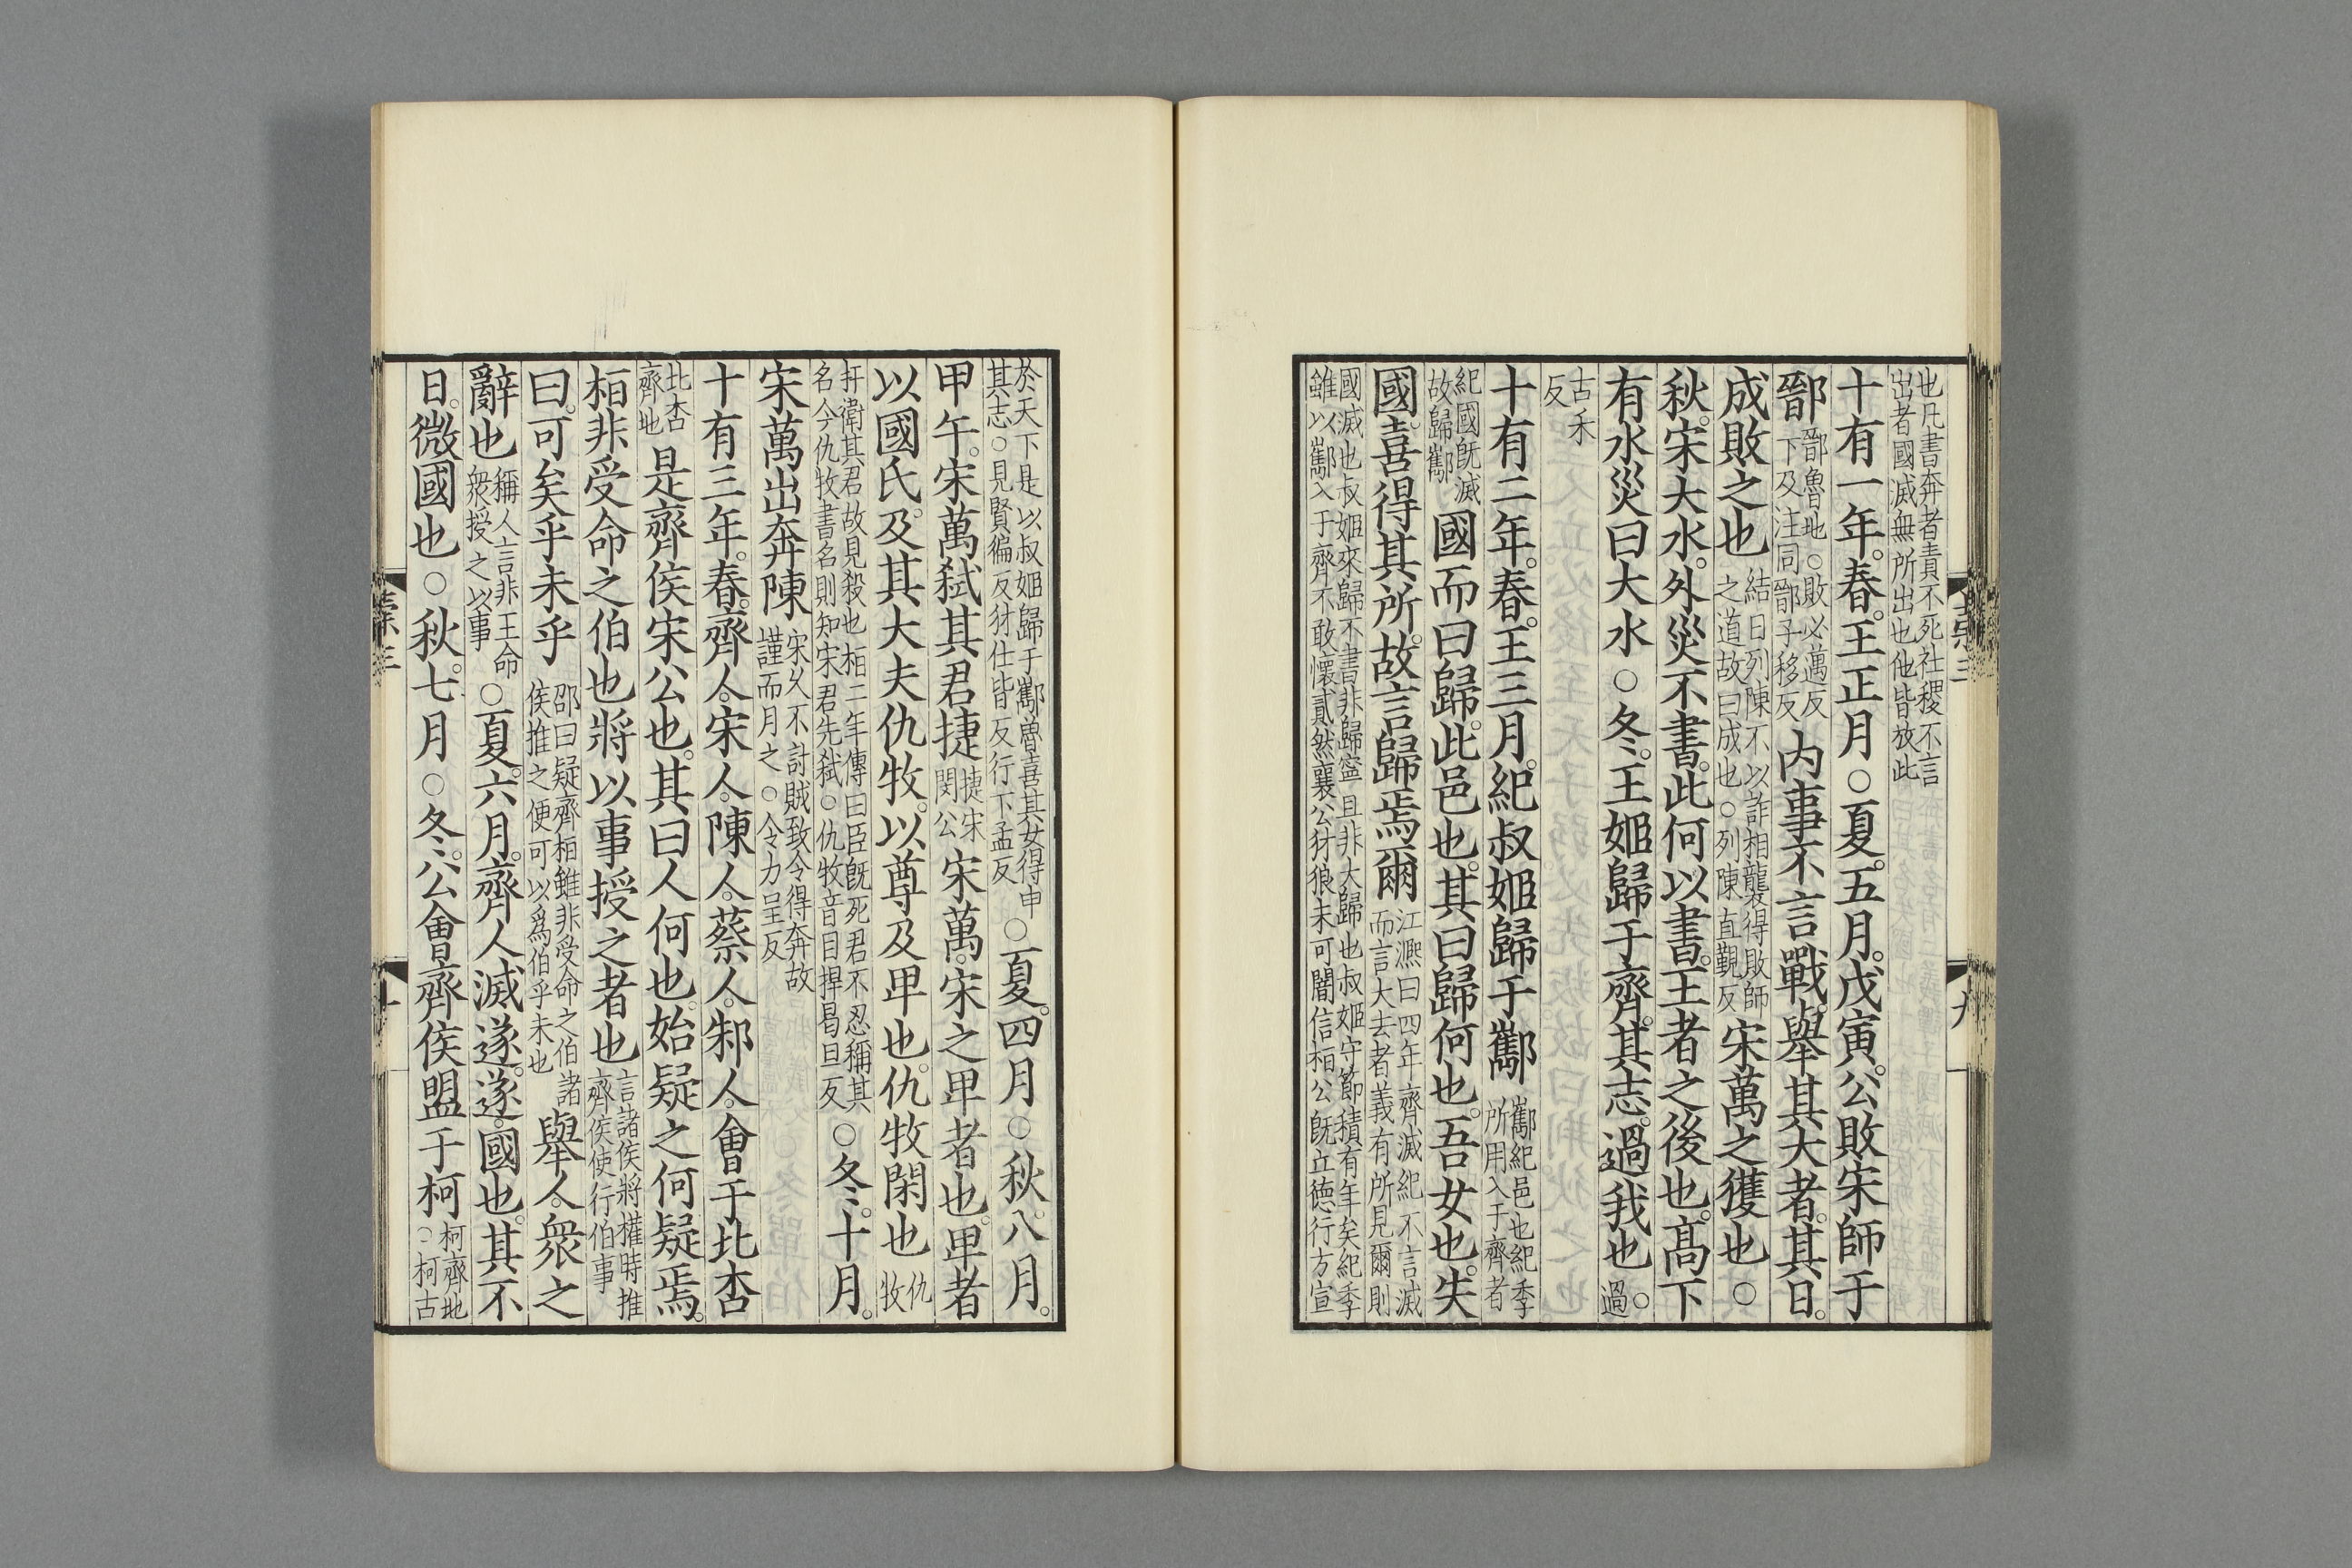 也凡書奔者責不死社稷不言
出者國滅無所出也他皆放此
十有一年春王正月○夏五月戊寅公敗宋師于
鄑鄑魯地○敗必邁反
下及注同鄑子移反内事不言戰舉其大者其日
成敗之也結日列陳不以詐相襲得敗師
之道故曰成也○列陳直覲反宋萬之獲也○
秋宋大水外災不書此何以書王者之後也高下
有水災曰大水○冬王姬歸于齊其志過我也○過
古禾
反
十有二年春王三月紀叔姬歸于酅酅紀邑也紀季
所用入于齊者
紀國既滅
故歸酅國而曰歸此邑也其曰歸何也吾女也失
國喜得其所故言歸焉爾江熈曰四年齊滅紀不言滅
而言大去者義有所見爾則
國滅也叔姬來歸不書非歸寧且非大歸也叔姬守節積有年矣紀季
雖以酅入于齊不敢懷貳然襄公豺狼未可闇信桓公既立德行方宣
於天下是以叔姬歸于酅魯喜其女得申
其志○見賢徧反豺仕皆反行下孟反○夏四月○秋八月
甲午宋萬弑其君捷捷宋
閔公宋萬宋之卑者也卑者
以國氏及其大夫仇牧以尊及卑也仇牧閑也仇
牧
扞衛其君故見殺也桓二年傳曰臣既死君不忍稱其
名今仇牧書名則知宋君先弑○仇牧音目捍曷旦反○冬十月
宋萬出奔陳宋久不討賊致令得奔故
謹而月之○令力呈反
十有三年春齊人宋人陳人蔡人邾人會于北杏
北杏
齊地是齊侯宋公也其曰人何也始疑之何疑焉
桓非受命之伯也將以事授之者也言諸侯將權時推
齊侯使行伯事
曰可矣乎未乎邵曰疑齊桓雖非受命之伯諸
侯推之便可以爲伯乎未也舉人衆之
辭也稱人言非王命
衆授之以事○夏六月齊人滅遂遂國也其不
日微國也○秋七月○冬公會齊侯盟于柯柯齊地
○柯古